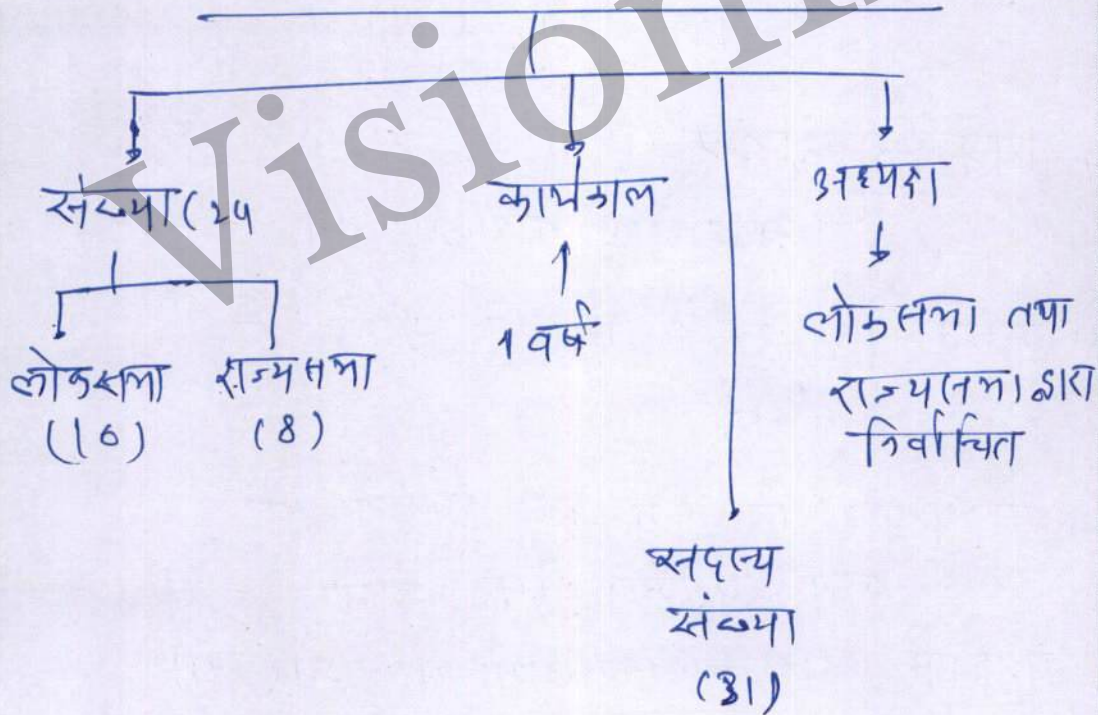 संख्या (24
लोकसभा (16)
राज्यसभा (8)
कार्यकाल
1 वर्ष
सदस्य
संख्या
(31)
अध्यक्ष
लोकसभा तथा
राज्यसभा द्वारा
निर्वाचित
Vision